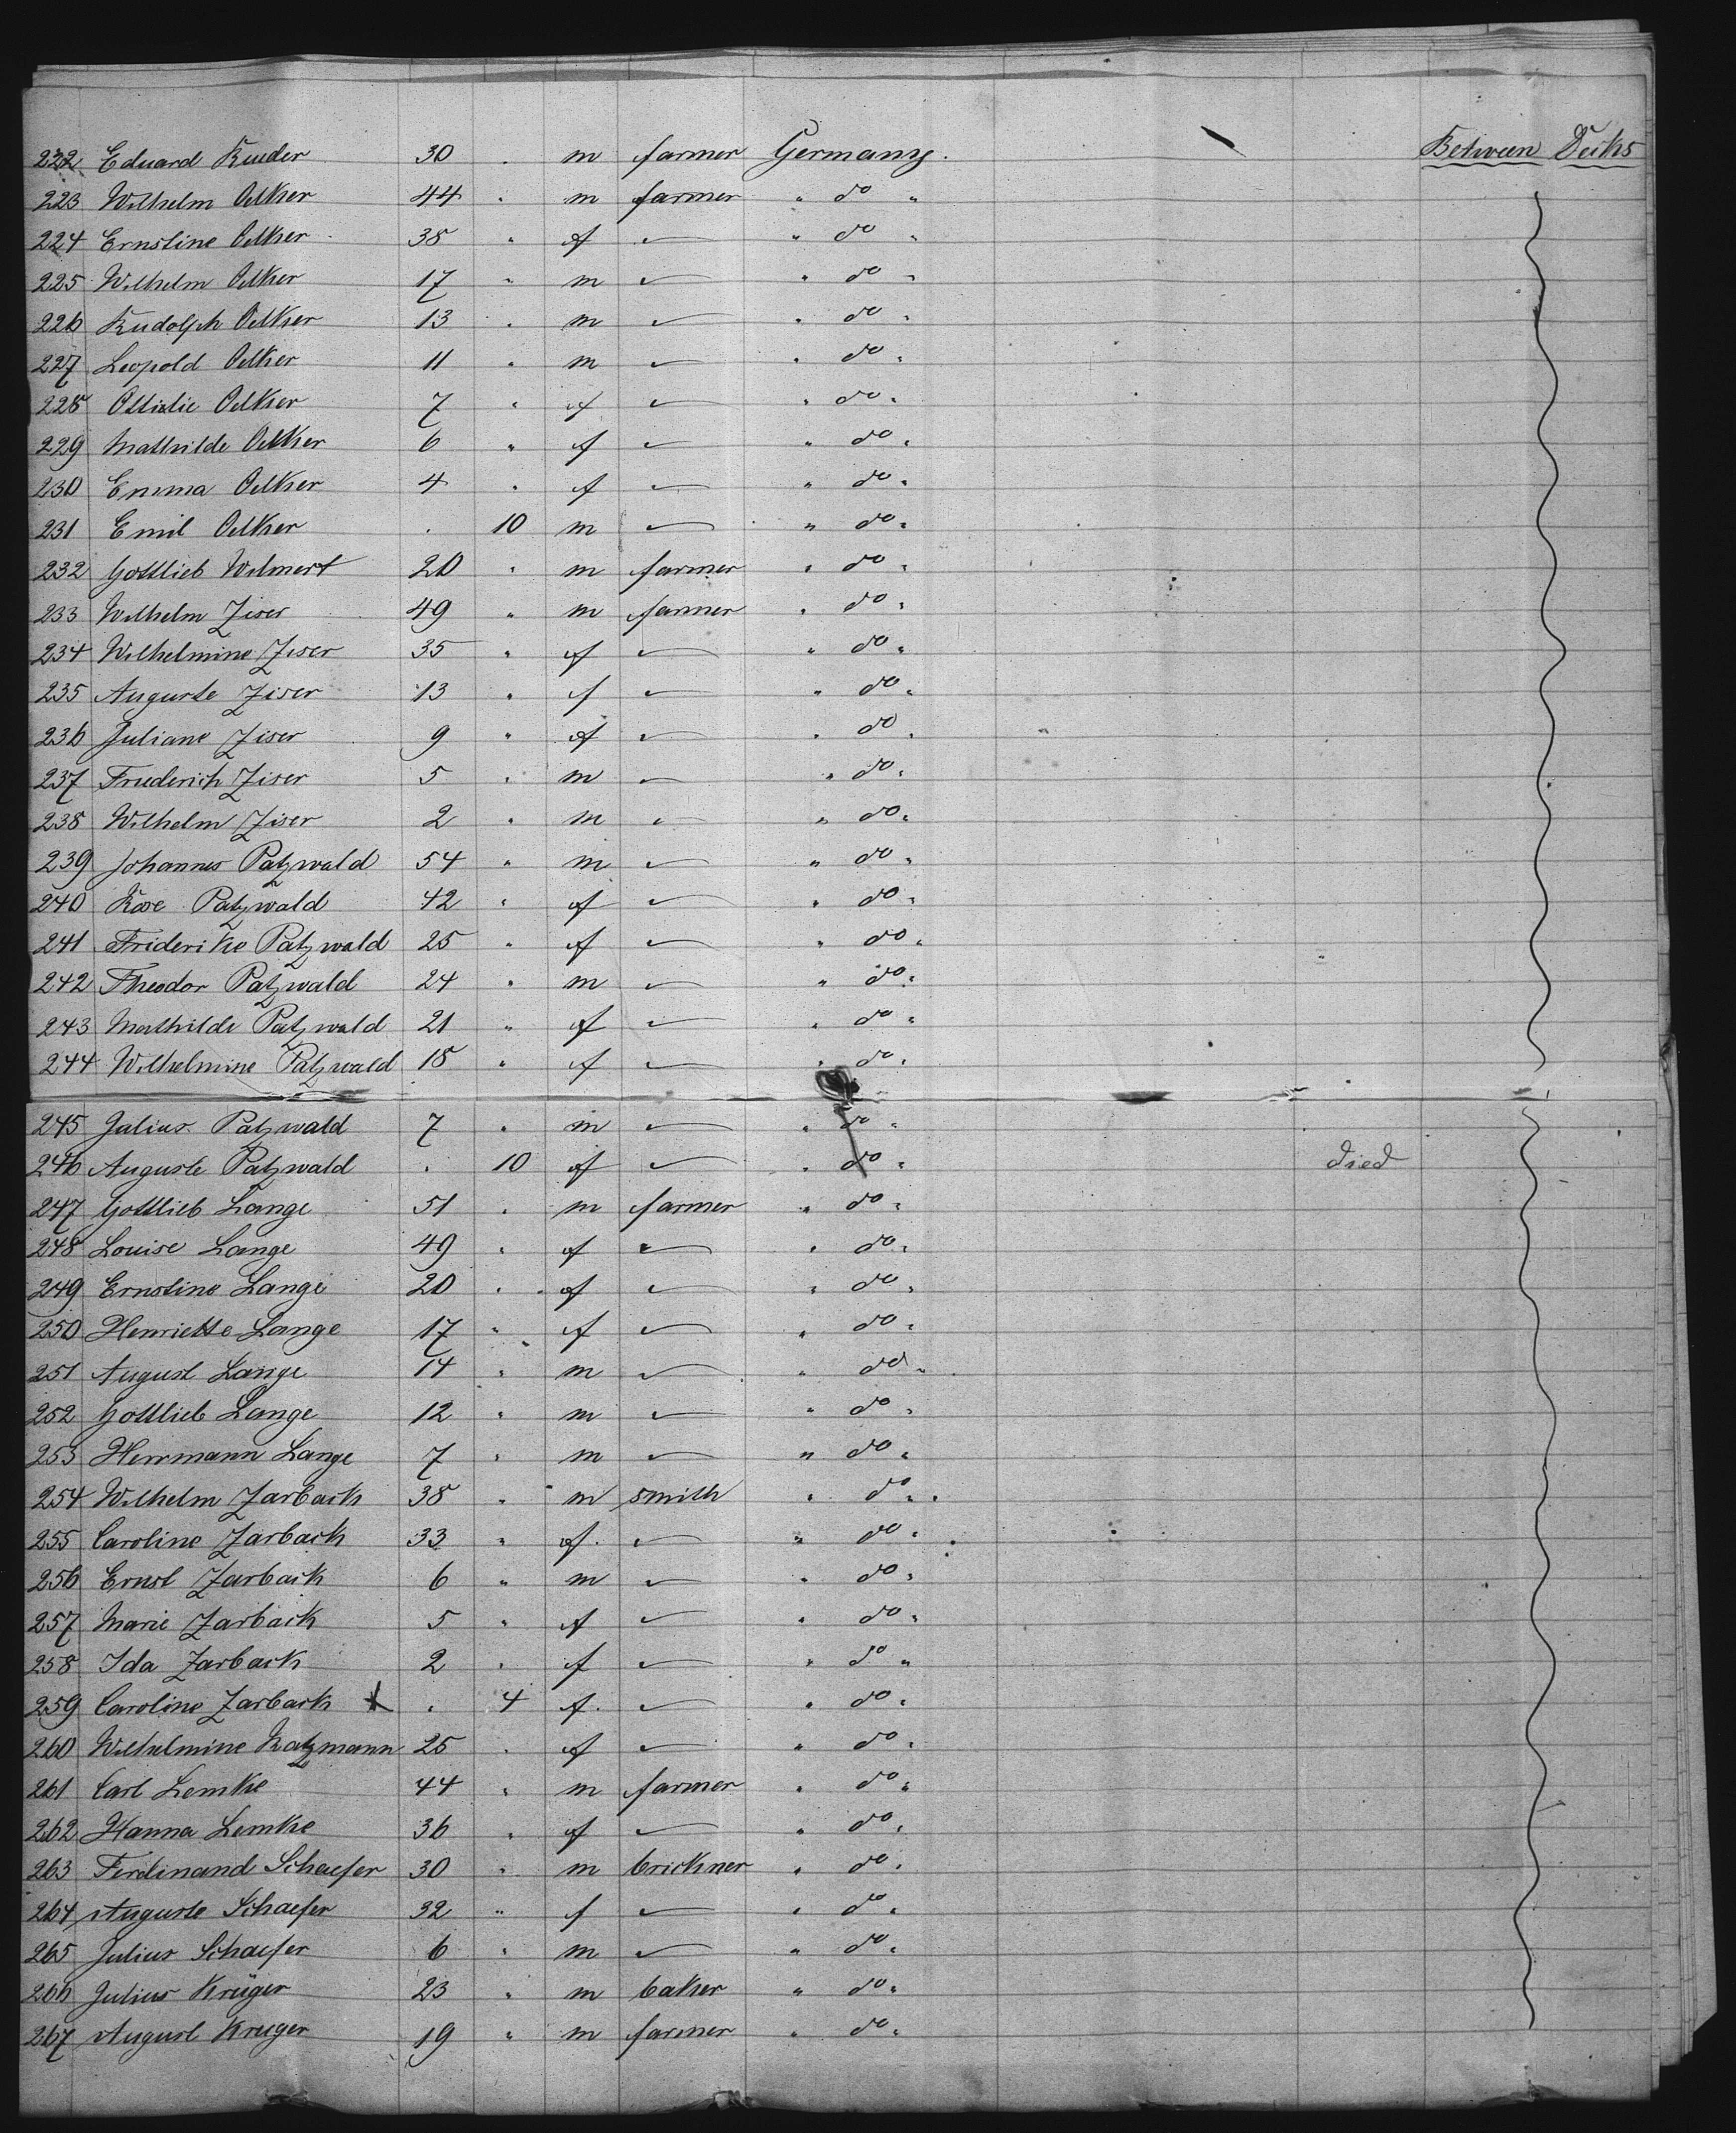 222 Eduard Kuder 30 " m farmer Germany. Between Decks
223 Wilhelm Oelker 44 " m farmer " do "
224 Ernstine Oelker 38 " f — " do "
225 Wilhelm Oelker 17 " m — " do "
226 Rudolph Oelker 13 " m — " do "
227 Leopold Oelker 11 " m — " do "
228 Ottielie Oelker 7 " f — " do "
229 Mathilde Oelker 6 " f — " do "
230 Emma Oelker 4 " f — " do "
231 Emil Oelker . 10 m — " do "
232 Gottlieb Wilmert 20 " m farmer " do "
233 Wilhelm Ziser 49 " m farmer " do "
234 Wilhelmine Ziser 35 " f — " do "
235 Auguste Ziser 13 " f — " do "
236 Juliane Ziser 9 " f — " do "
237 Friederich Ziser 5 " m — " do "
238 Wilhelm Ziser 2 " m — " do "
239 Johannes Patzwald 54 " m — " do "
240 Rose Patzwald 42 " f — " do "
241 Friderike Patzwald 25 " f — " do "
242 Theodor Patzwald 24 " m — " do "
243 Mathilde Patzwald 21 " f — " do "
244 Wilhelmine Patzwald 18 " f — " do "
245 Julius Patzwald 7 " m — " do "
246 Auguste Patzwald . 10 f — " do " died
247 Gottlieb Lange 51 " m farmer " do "
248 Louise Lange 49 " f — " do "
249 Ernstine Lange 20 " f — " do "
250 Henriette Lange 17 " f — " do "
251 August Lange 14 " m — " do "
252 Gottlieb Lange 12 " m — " do "
253 Herrmann Lange 7 " m — " do "
254 Wilhelm Zarback 38 " m smith " do "
255 Caroline Zarback 33 " f — " do "
256 Ernst Zarback 6 " m — " do "
257 Marie Zarback 5 " f — " do "
258 Ida Zarback 2 " f — " do "
259 Caroline Zarback x . 4 f — " do "
260 Wilhelmine Katzmann 25 " f — " do "
261 Carl Lemke 44 " m farmer " do "
262 Hanna Lemke 36 " f — " do "
263 Ferdinand Schaefer 30 " m brickner " do "
264 Auguste Schaefer 32 " f — " do "
265 Julius Schaefer 6 " m — " do "
266 Julius Krüger 23 " m baker " do "
267 August Kruger 19 " m farmer " do "